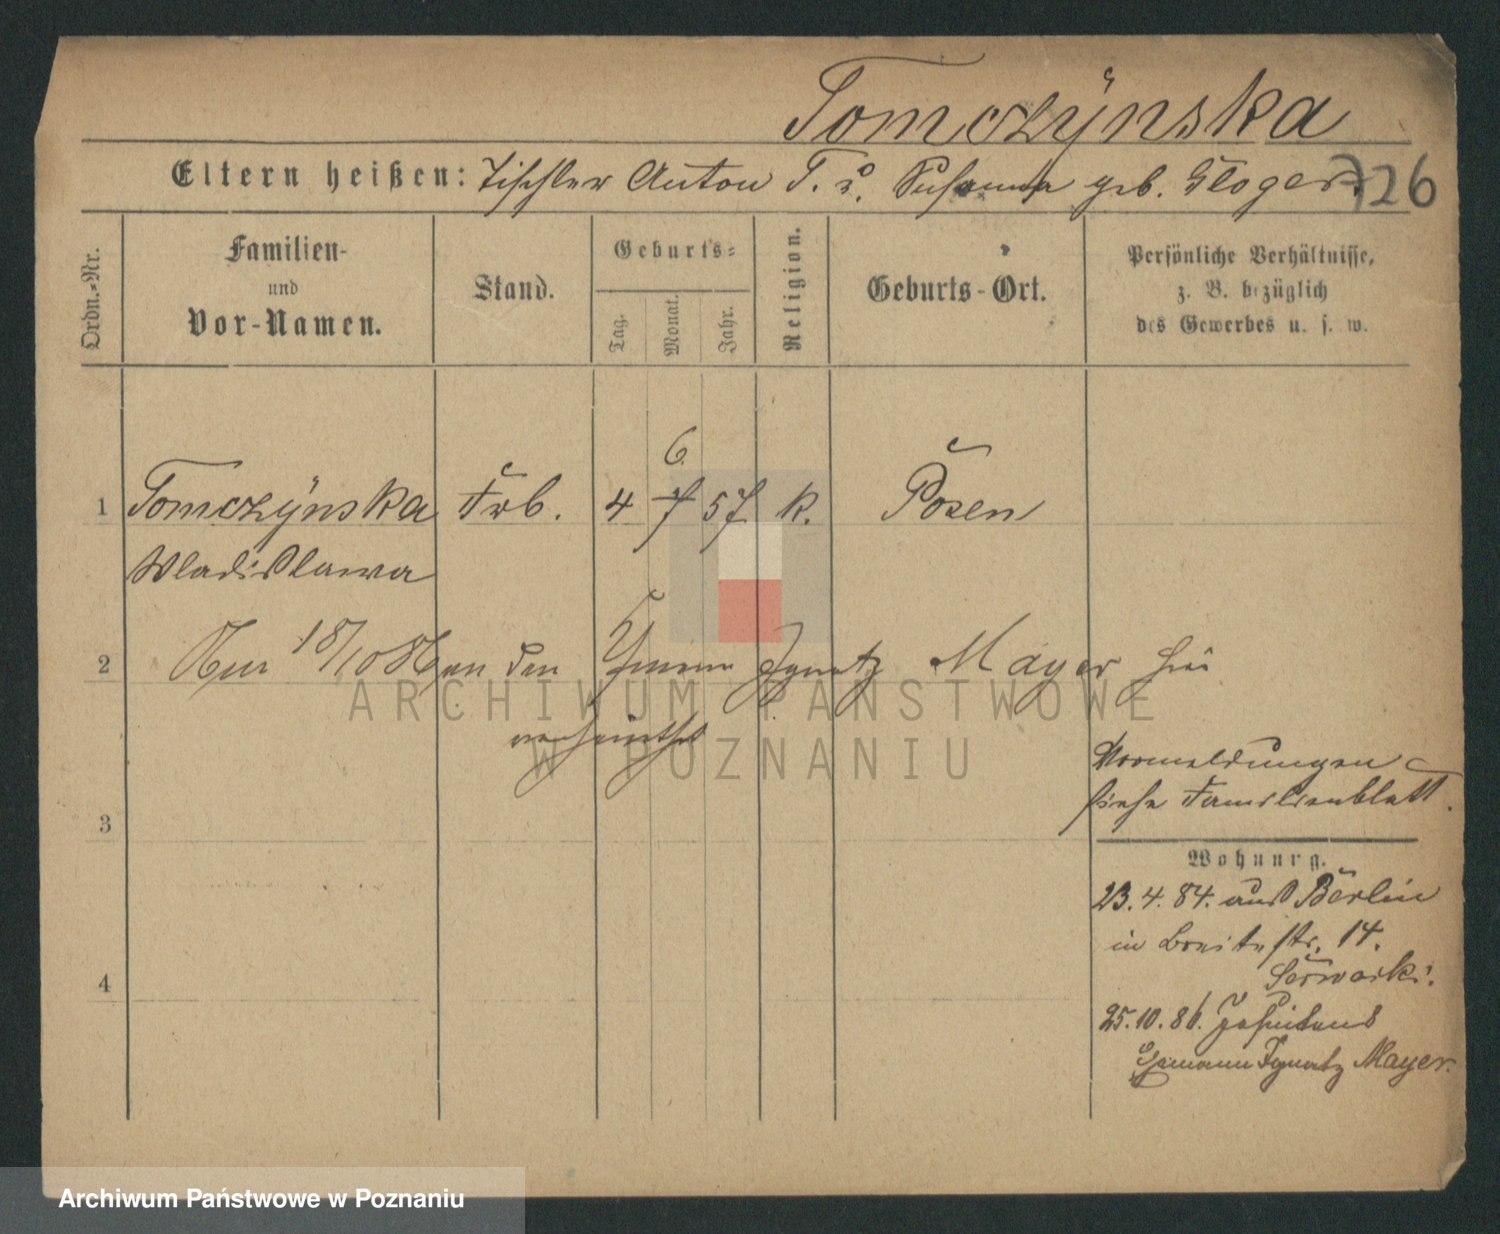 Tomczÿnska
Eltern heißen: Tischler Anton T. u. Susanna geb. Gloger. 726
Ordn.-Nr.
Familien-
und
Vor-Namen.
Stand.
Geburts-
Tag.
Monat.
Jahr.
Religion.
Geburts-Ort.
Persönliche Verhältnisse,
z. B. bezüglich
des Gewerbes u. s. w.
6
1 Tomczÿnska 4 7 57 k. Posen
Wladislawa
2 18/10 86 an den Ignatz Mayer hier
verheirathet
ARCHIWUM PAŃSTWOWE
W POZNANIU
Vormeldungen
siehe Familienblatt.
3
Wohnung.
23. 4. 84. aus Berlin
in Breitestr. 14.
4
25. 10. 86.
Ehemann Ignatz Mayer.
Archiwum Państwowe w Poznaniu